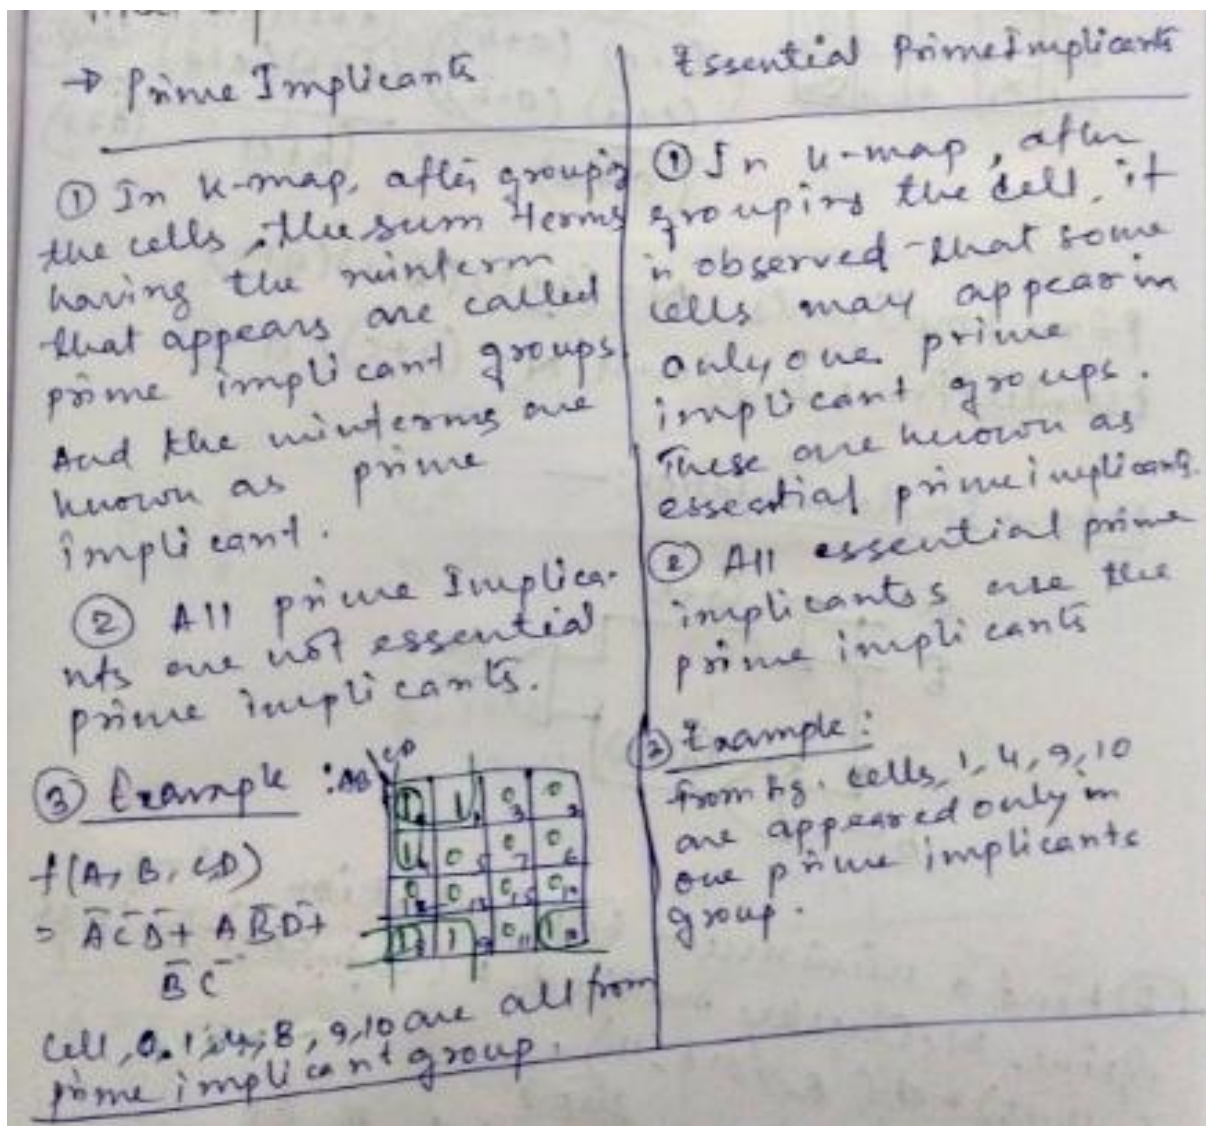 → Prime Implicants
① In K-map, after grouping
the cells, the sum terms
having the minterm
that appears are called
prime implicant groups
And the minterms are
known as prime
implicant.
② All prime Implica-
nts are not essential
prime implicants.
③ Example :
AB CD
1 0 1 1 0 3 0 2
1 4 0 5 0 7 0 6
0 12 0 13 0 15 0 14
1 8 1 9 0 11 1 10
f(A, B, C, D)
= A̅C̅D̅ + AB̅D̅ +
B̅C̅
Cell, 0, 1, 4, 8, 9, 10 are all from
prime implicant group.
Essential Prime Implicants
① In K-map, after
grouping the cell, it
is observed that some
cells may appear in
only one prime
implicant groups.
These are known as
essential prime implicants.
② All essential prime
implicants are the
prime implicants
③ Example :
From fig. cells, 1, 4, 9, 10
are appeared only in
one prime implicants
group.